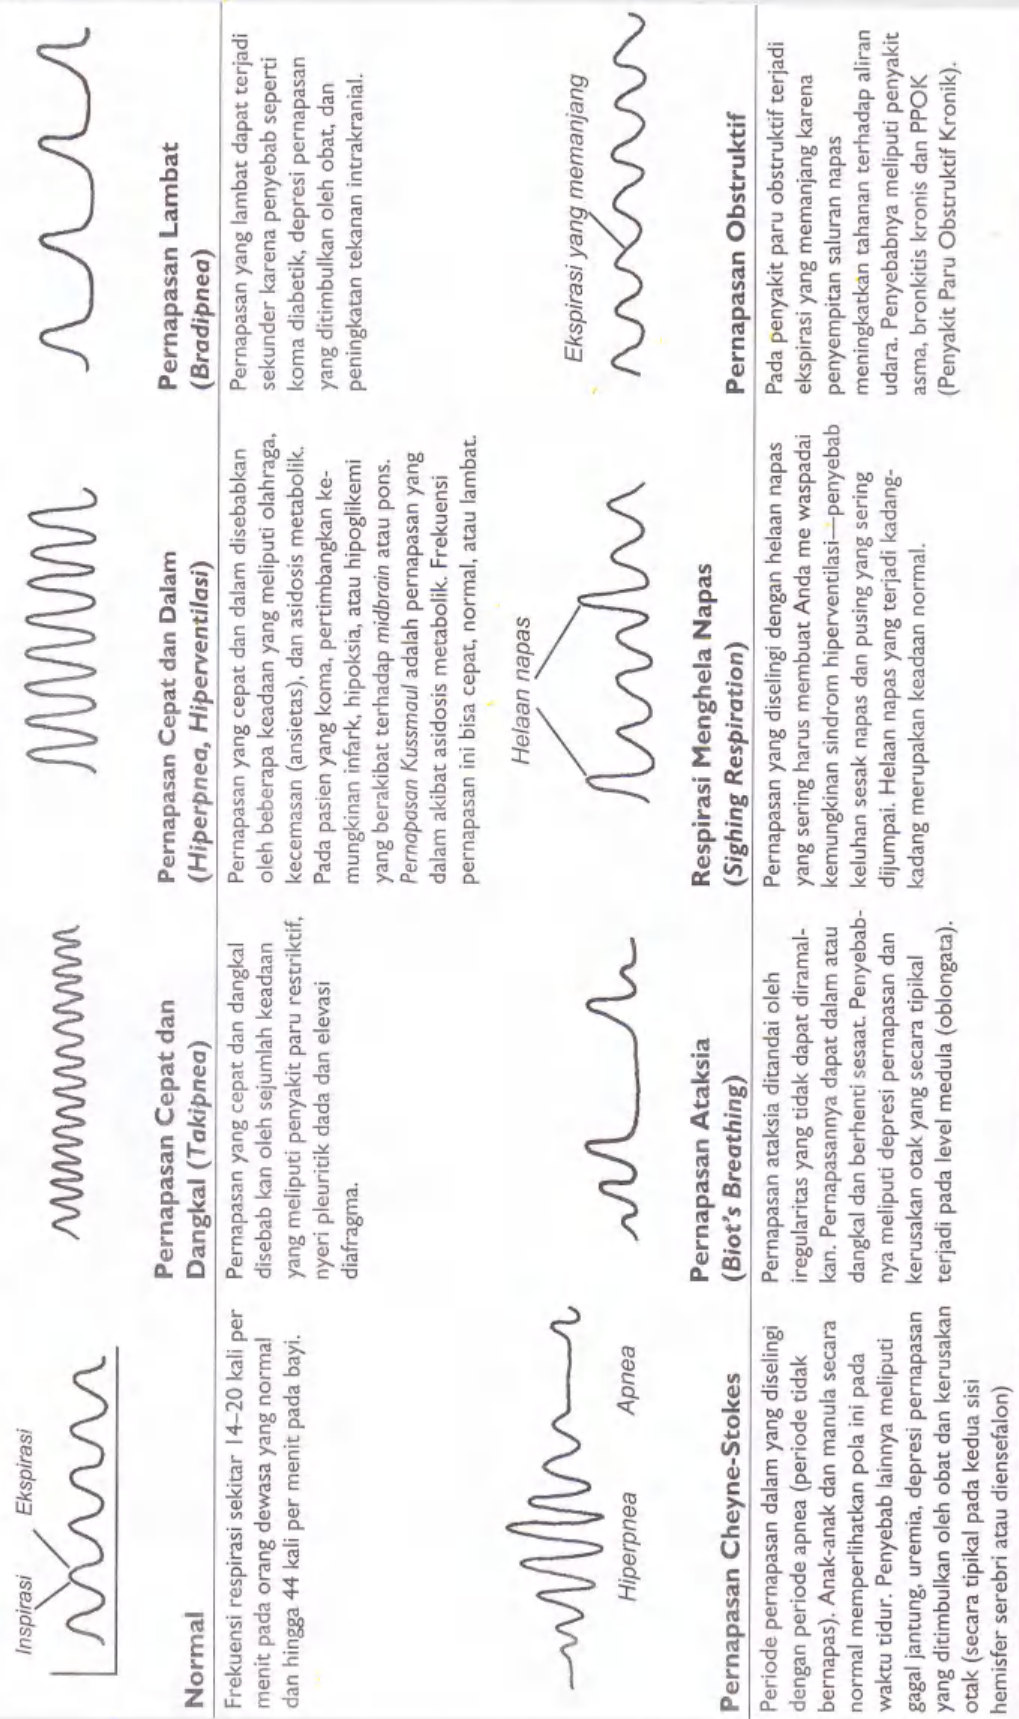 Inspirasi
Ekspirasi
Normal
Frekuensi respirasi sekitar 14–20 kali per
menit pada orang dewasa yang normal
dan hingga 44 kali per menit pada bayi.
Pernapasan Cepat dan
Dangkal (Takipnea)
Pernapasan yang cepat dan dangkal
disebab kan oleh sejumlah keadaan
yang meliputi penyakit paru restriktif,
nyeri pleuritik dada dan elevasi
diafragma.
Pernapasan Cepat dan Dalam
(Hiperpnea, Hiperventilasi)
Pernapasan yang cepat dan dalam disebabkan
oleh beberapa keadaan yang meliputi olahraga,
kecemasan (ansietas), dan asidosis metabolik.
Pada pasien yang koma, pertimbangkan ke-
mungkinan infark, hipoksia, atau hipoglikemi
yang berakibat terhadap midbrain atau pons.
Pernapasan Kussmaul adalah pernapasan yang
dalam akibat asidosis metabolik. Frekuensi
pernapasan ini bisa cepat, normal, atau lambat.
Pernapasan Lambat
(Bradipnea)
Pernapasan yang lambat dapat terjadi
sekunder karena penyebab seperti
koma diabetik, depresi pernapasan
yang ditimbulkan oleh obat, dan
peningkatan tekanan intrakranial.
Hiperpnea
Apnea
Pernapasan Cheyne-Stokes
Periode pernapasan dalam yang diselingi
dengan periode apnea (periode tidak
bernapas). Anak-anak dan manula secara
normal memperlihatkan pola ini pada
waktu tidur. Penyebab lainnya meliputi
gagal jantung, uremia, depresi pernapasan
yang ditimbulkan oleh obat dan kerusakan
otak (secara tipikal pada kedua sisi
hemisfer serebri atau diensefalon)
Pernapasan Ataksia
(Biot's Breathing)
Pernapasan ataksia ditandai oleh
iregularitas yang tidak dapat diramal-
kan. Pernapasannya dapat dalam atau
dangkal dan berhenti sesaat. Penyebab-
nya meliputi depresi pernapasan dan
kerusakan otak yang secara tipikal
terjadi pada level medula (oblongata).
Helaan napas
Respirasi Menghela Napas
(Sighing Respiration)
Pernapasan yang diselingi dengan helaan napas
yang sering harus membuat Anda me waspadai
kemungkinan sindrom hiperventilasi—penyebab
keluhan sesak napas dan pusing yang sering
dijumpai. Helaan napas yang terjadi kadang-
kadang merupakan keadaan normal.
Ekspirasi yang memanjang
Pernapasan Obstruktif
Pada penyakit paru obstruktif terjadi
ekspirasi yang memanjang karena
penyempitan saluran napas
meningkatkan tahanan terhadap aliran
udara. Penyebabnya meliputi penyakit
asma, bronkitis kronis dan PPOK
(Penyakit Paru Obstruktif Kronik).